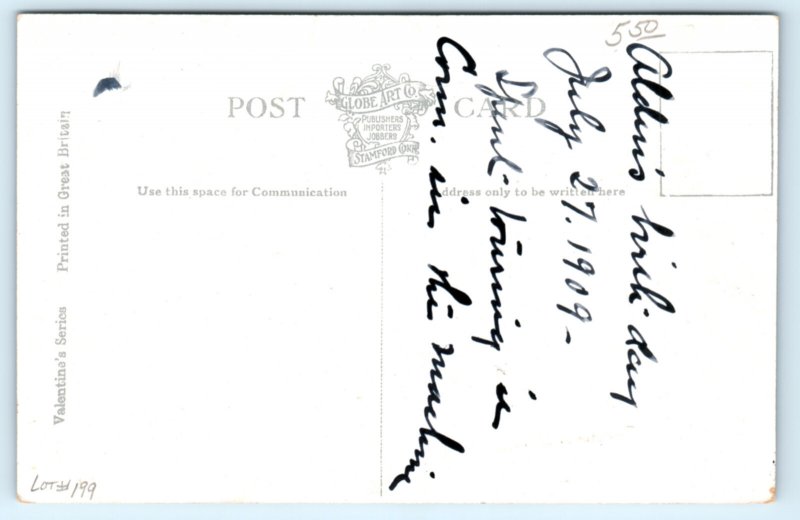 5.50
POST CARD
GLOBE ART CO.
PUBLISHERS
IMPORTERS
JOBBERS
STAMFORD CONN.
Use this space for Communication
Address only to be written here
Valentine's Series Printed in Great Britain
Alden's birth-day
July 27. 1909-
Spent touring in
Conn. in the machine
LOT# 199